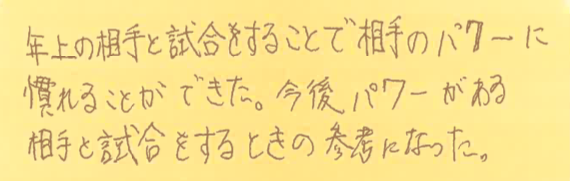 年上の相手と試合をすることで相手のパワーに
慣れることができた。今後パワーがある
相手と試合をするときの参考になった。